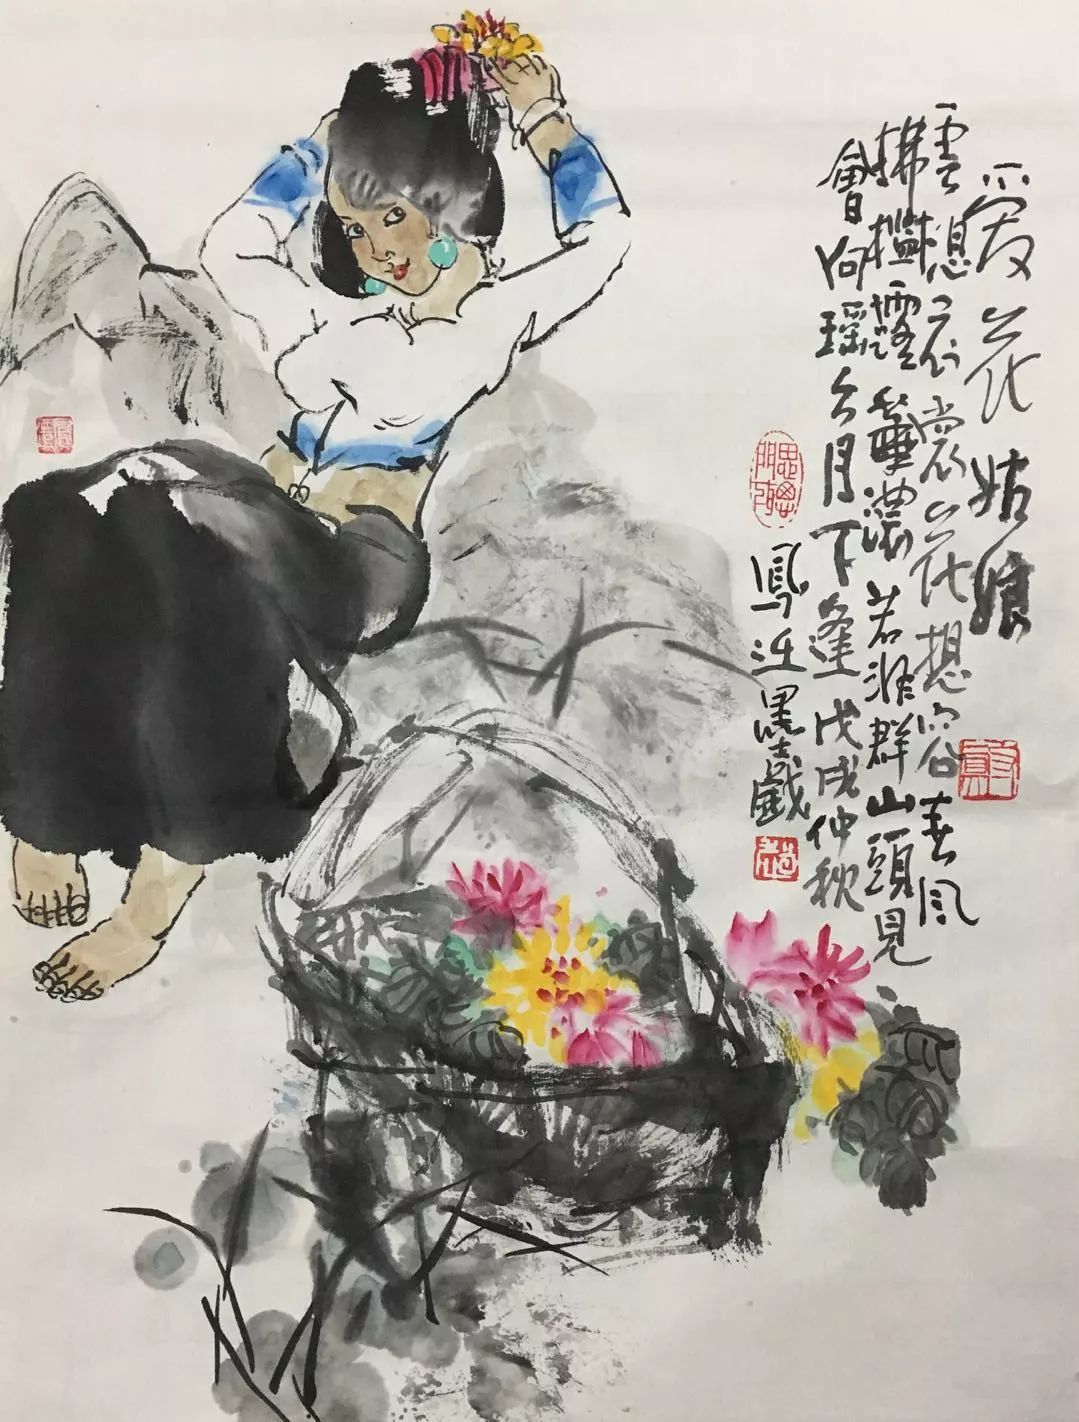 爱花姑娘
雲想衣裳花想容春风
拂檻露華濃若非群山頭見
會向瑶台月下逢戊戌仲秋
鳳墨戲